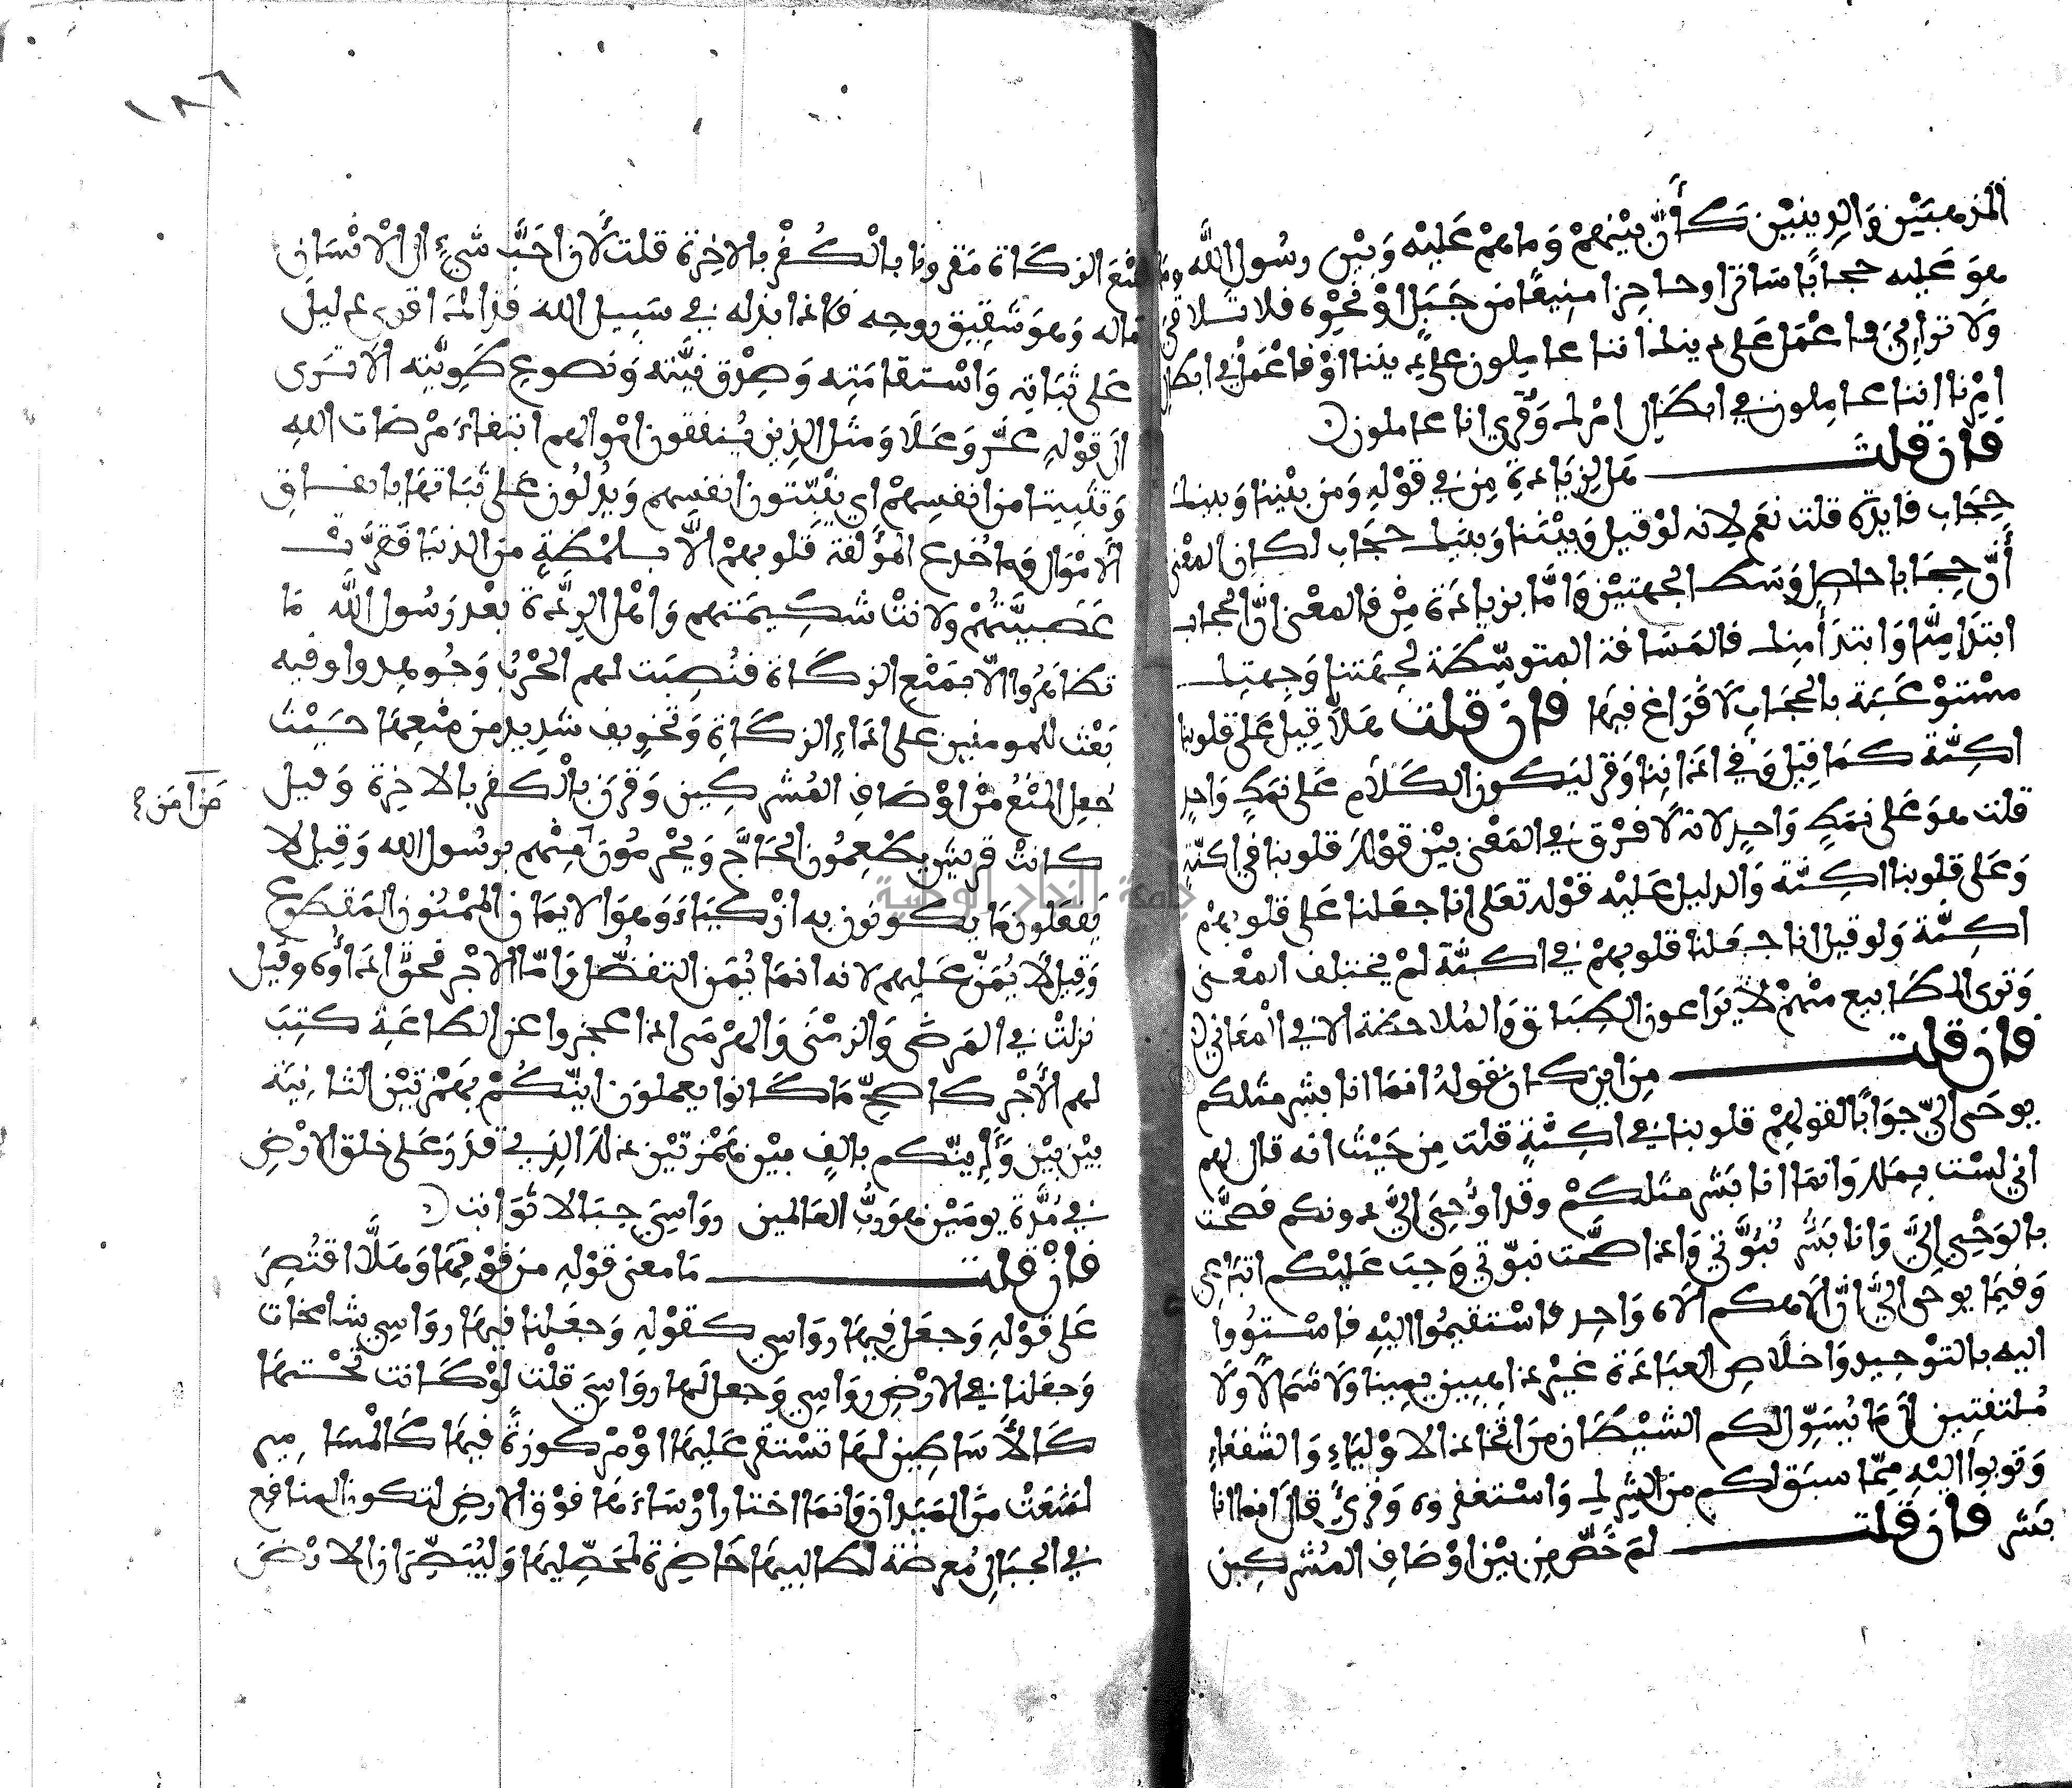 المذهبين والدينين كأن بينهم وما هم عليه وبين رسول الله وما
هو عليه حجابا ساترا وحاجزا منيعا من جبل أو نحوه فلا تلاقي
ولا ترائي فاعمل على دينك اننا عاملون على ديننا أو فاعمل في ابطال
امرنا اننا عاملون في ابطال امرك وقرئ انا عاملون
فان قلت هل لزيادة من في قوله ومن بيننا وبينك
حجاب فايدة قلت نعم لانه لو قيل وبيننا وبينك حجاب لكان المعنى
أن حجابا حاصل وسط الجهتين وأما بزيادة من فالمعنى ان الحجاب
ابتدا منا وابتدأ منك فالمسافة المتوسطة لجهتنا وجهتك
مستوعبة بالحجاب لا فراغ فيها فان قلت هلا قيل على قلوبنا
اكنة كما قيل وفي اذاننا وقر ليكون الكلام على نمط واحد
قلت هو على نمط واحد لانه لا فرق في المعنى بين قولك قلوبنا في اكنة
وعلى قلوبنا اكنة والدليل عليه قوله تعلى إنا جعلنا على قلوبهم
اكنة ولو قيل انا جعلنا قلوبهم في اكنة لم يختلف المعنى
وترى المطابيع منهم لا يراعون الطباق والملاحظة الا في المعاني
فان قلت من اين كان قوله انما انا بشر مثلكم
يوحى الي جوابا لقولهم قلوبنا في اكنة قلت من حيث انه قال لهم
اني لست بملك وانما انا بشر مثلكم وقد اوحي الي دونكم فصحت
بالوحي الي وانا بشر نبوتي واذا صحت نبوتي وجب عليكم اتباعي
وفيما يوحى الي ان الاهكم الاه واحد فاستقيموا اليه فاستووا
اليه بالتوحيد واخلاص العبادة غير ذاهبين يمينا ولا شمالا ولا
ملتفتين إلى ما يسول لكم الشيطان من اتخاذ الاولياء والشفعاء
وتوبوا اليه مما سبق لكم من الشرك واستغفروه وقرئ قال انما انا
بشر فان قلت لم خص من بين اوصاف المشركين
منع الزكاة مقرونا بالكفر بالاخرة قلت لأن احب شيء الى الانسان
ماله وهو شقيق روحه فاذا بذله في سبيل الله فذلك اقوى دليل
على ثباته واستقامته وصدق نيته ونصوع طويته الا ترى
الى قوله عز وعلا ومثل الذين ينفقون اموالهم ابتغاء مرضات الله
وتثبيتا من انفسهم اي يثبتون انفسهم ويدلون على ثباتها بانفاق
الأموال وما خدع المؤلفة قلوبهم إلا بلمظة من الدنيا فقرت
عصبيتهم ولانت شكيمتهم واهل الردة بعد رسول الله ما
تظاهروا الا بمنع الزكاة فنصبت لهم الحرب وجوهدوا وفيه
بعث للمومنين على اداء الزكاة وتخويف شديد من منعها حيث
جعل المنع من اوصاف المشركين وقرن بالكفر بالاخرة وقيل
كانت قريش يطعمون الحاج ويحرمون من امن منهم برسول الله وقيل لا
يفعلون ما يكونون به ازكياء وهو الايمان الممنون المقطوع
وقيل لا يمن عليهم لانه انما يمن التفضل واما الاجر فحق اداؤه وقيل
نزلت في المرضى والزمنى والهرمى اذا عجزوا عن الطاعة كتب
لهم الأجر كاصح ما كانوا يعملون ايتكم بهمزتين الثانية
بين بين وأاينكم بالف بين همزتين ذلك الذي قدر على خلق الارض
في مدة يومين هو رب العالمين رواسي جبالا ثوابت
فان قلت ما معنى قوله من فوقها وهلا اقتصر
على قوله وجعل فيها رواسي كقوله وجعلنا فيها رواسي شامخات
وجعلنا في الارض رواسي وجعل لها رواسي قلت لو كانت تحتها
كالأساطين لها تستقر عليها او مركوزة فيها كالمسامير
لمنعت من الميدان وانما اختار ارساءها فوق الارض لتكون المنافع
في الجبال معرضة لطالبيها حاضرة لمحصليها وليبصر ان الارض